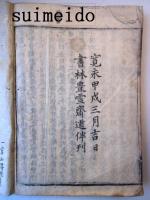 suimeido
寛永甲戌三月吉日
書林豊雪斎道伴刊